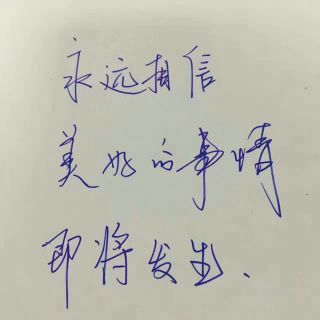 永远相信
美好的事情
即将发生.